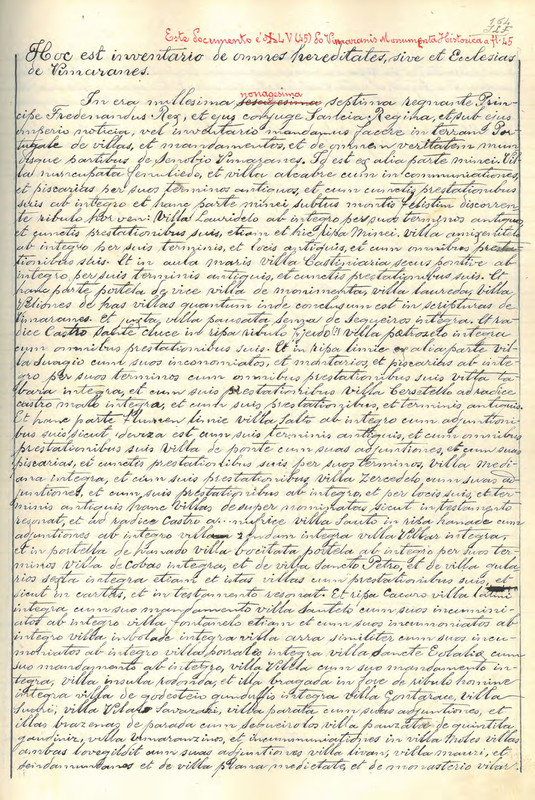 164
Este documento é o XLV (45) do Vimaranis Monumenta Historica a fl. 45
Hoc est inventario de omnes hereditates, sive et Ecclesias
de Vimaranes.
nonagesima
In era millesima sexagesima septima regnante Prin-
cipe Fredenandus Rex, et ejus conjuge Sancia, Regina, et sub ejus
imperio noticia, vel inventario mandamus facere in terram Por-
tugale de villas, et mandamentos, et de omnem veritatem
partibus de Vimaranes. Id est ex alia parte minei vil-
la nuncupata fenuliedo, et villa alcabre cum incommuniationes,
et piscarias per suos terminos antiquos, et cum cunctis prestationibus
suis ab integro et hanc parte minei subtus montis felistim discurren-
te ribulo villa Lauridelo ab integro per suos terminos antiquos,
et cunctis prestationibus suis, etiam et hic ripa Minei. villa amisentelo
ab integro per suis terminis, et locis antiquis, et cum omnibus presta-
tionibus suis. Et in aula maris villa Castiniaria secus pontive ab
integro per suis terminis antiquis, et cunctis prestationibus suis. Et
hanc parte portela de vice villa de monimenta, villa lauredas, villa
de has villas quantum inde conclusum est in scripturas de
Vimaranes. Et villa pausata senra de Segueiros integra. Et ra-
dice Castro in ripa ribulo villa petroselo integra
cum omnibus prestationibus suis. Et in ripa limie alia parte vil-
la Suagio cum suos inconomiatos, et montarios, et piscarias ab inte-
gro per suos terminos cum omnibus prestationibus suis villa ta-
baria integra, et cum suis prestationibus villa Cersetello ad radice
castro malo integra, et cum suis prestationibus, et terminis antiquis.
Et hanc parte flumen limie villa Salto ab integro cum adjuntioni-
bus suis sicut est cum suis terminis antiquis, et cum omnibus
prestationibus suis Villa de ponte cum suas adjuntiones, et cum suas
piscarias, et cunctis prestationibus suis per suos terminos, villa medi-
ana integra, et cum suis prestationibus, villa Zercedelo cum suas ad-
juntiones, et cum suis prestationibus ab integro, et per locis suis, et ter-
minis antiquis hanc villas de super nominatas sicut in testamento
resonat, et ad radice Castro villa Sauto in ripa hanade cum
adjuntiones ab integro villa integra villa Villar integra,
et in portella de hanado villa vocitata portela ab integro per suos ter-
minos villa de Cobas integra, et de villa Sancto Petro, et de villa
sexta integra etiam et istas villas cum prestationibus suis, et
sicut in cartas, et in testamento resonat. Et ripa Cavaro villa
integra cum suo mandamento villa Santelo cum suos incumuni-
atos ab integro villa fontanelo etiam et cum suos incumoniatos ab
integro villa integra villa arra similiter cum suos incu-
moniatos ab integro villa porales integra villa Sancte Eolalie cum
suo mandamento ab integro, villa Vilela cum suo mandamento in-
tegra, villa insula rotonda, et illa bragada in foze de ribulo homine
integra villa de godestein integra villa Gontarace, villa
villa villa parata cum suas adjuntiones, et
illas brazenas de parada cum sebueirolos villa pausata de quintila
villa Vimaranzinos, et incumuniationes in villa Molis villas
ambas leovegildit cum suas adjuntiones villa livan, villa mauri, et
et de villa plana medietate, et de monasterio vilar